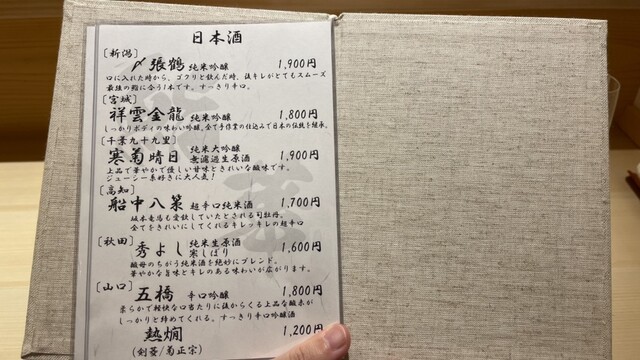 日本酒
〔新潟〕
〆張鶴 純米吟醸 1,900円
口に入れた時から、ゴクリと飲んだ時、後キレがとてもスムーズ
最後の鮨に合う1本です。すっきり辛口。
〔宮城〕
祥雲金龍 純米吟醸 1,800円
しっかりボディの味わい吟醸。全て手作業の仕込みで日本の伝統を継承。
〔千葉九十九里〕
寒菊晴日 純米大吟醸 無濾過生原酒 1,900円
上品で華やかで優しい甘味ときれいな酸味です。
ジューシー系好きに大人気！
〔高知〕
船中八策 超辛口純米酒 1,700円
坂本竜馬も愛飲していたとされる司牡丹。
全てをきれいにしてくれるキレッキレの超辛口
〔秋田〕
秀よし 純米生原酒 寒しぼり 1,600円
酸母のちがう純米酒を絶妙にブレンド。
華やかな旨味とキレのある味わいが広がります。
〔山口〕
五橋 辛口吟醸 1,800円
柔らかで軽快な口当たりに後からくる上品な酸味が
しっかりと締めてくれる。すっきり辛口吟醸酒
熱燗 1,200円
(剣菱/菊正宗)